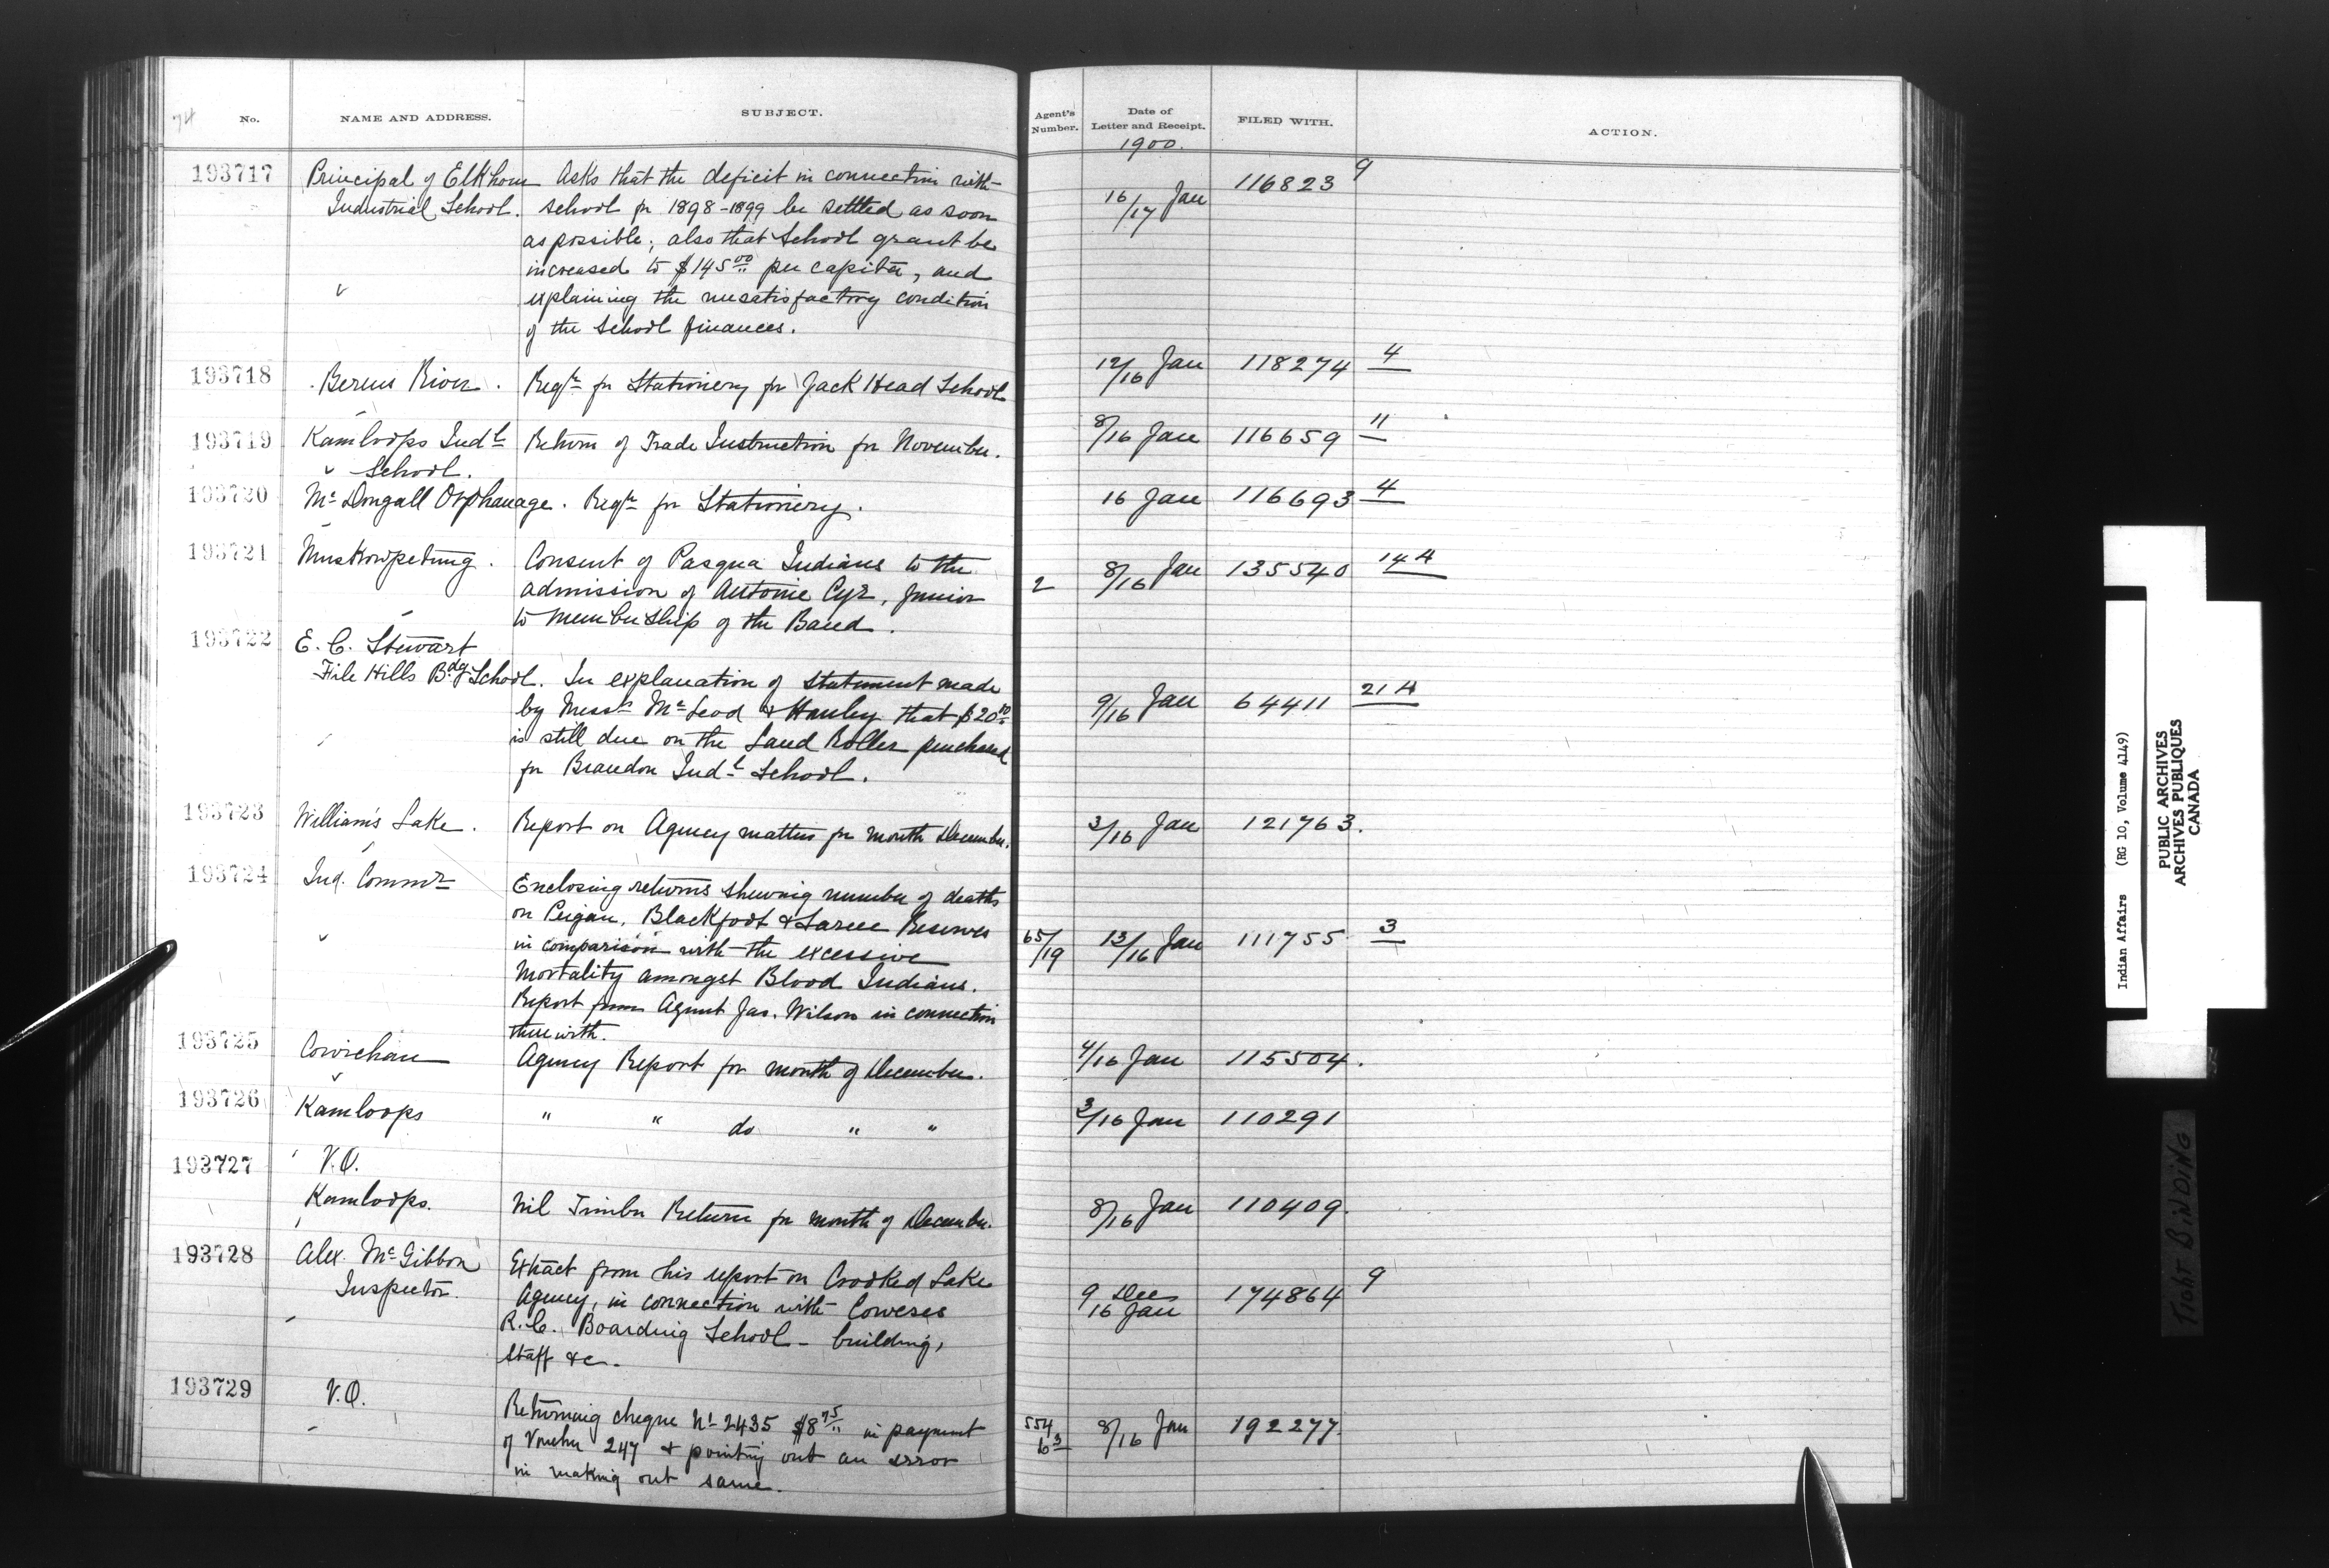 74 No. NAME AND ADDRESS. SUBJECT. Agent's Number. Date of Letter and Receipt. FILED WITH. ACTION.
1900.
193717 Principal of Elkhorn Asks that the deficit in connection with 116823 9
Industrial School. School for 1898-1899 be settled as soon 16/17 Jan
as possible; also that School grant be
increased to $145.00 per capita, and
explaining the unsatisfactory condition
of the School finances.
193718 Berens River. Reqn for Stationery for Jack Head School 12/16 Jan 118274 4
193719 Kamloops Indl Return of Trade Instruction for November. 8/16 Jan 116659 11
School.
193720 McDougall Orphanage. Reqn for Stationery. 16 Jan 116693 4
193721 Muskowpetung. Consent of Pasqua Indians to the 2 8/16 Jan 135540 14 A
admission of Antoine Cyr, Junior
to membership of the Band.
193722 E. C. Stewart
File Hills Bdg School. In explanation of statement made
by Messrs McLeod & Hanley that $20.00 9/16 Jan 64411 21 A
is still due on the Land Roller purchased
for Brandon Indl School.
193723 William's Lake. Report on Agency matters for month December. 3/16 Jan 121763.
193724 Ind. Commr Enclosing returns shewing number of deaths
on Peigan, Blackfoot & Sarcee Reserves
in comparison with the excessive 65/19 13/16 Jan 111755 3
mortality amongst Blood Indians.
Report from Agent Jas. Wilson in connection
therewith.
193725 Cowichan Agency Report for month of December. 4/16 Jan 115504.
193726 Kamloops " " do " " 3/16 Jan 110291
193727 V.O.
Kamloops. Nil Timber Return for month of December. 8/16 Jan 110409.
193728 Alex. McGibbon Extract from his report on Crooked Lake 9
Inspector. Agency, in connection with Coweses 9 Dec 174864
R.C. Boarding School - building, 16 Jan
Staff &c.
193729 V.O. Returning cheque No 2435 $8.75 in payment 554 8/16 Jan 192277.
of Voucher 247 & pointing out an error
in making out same.
Indian Affairs (RG 10, Volume 4149)
PUBLIC ARCHIVES
ARCHIVES PUBLIQUES
CANADA
TIGHT BINDING